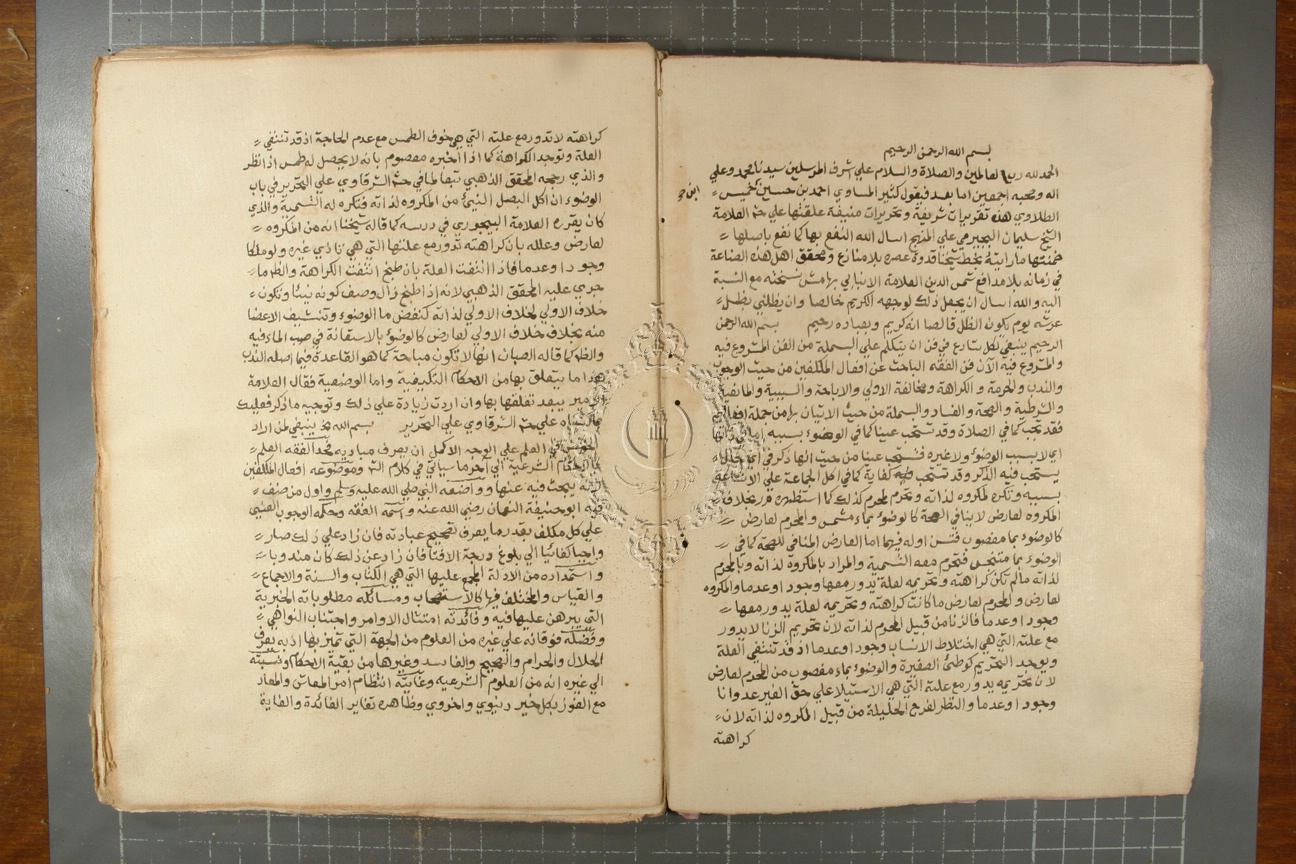 بسم الله الرحمن الرحيم
الحمد لله رب العالمين والصلاة والسلام علي اشرف المرسلين سيدنا محمد وعلي
اله وصحبه اجمعين اما بعد فيقول كثير المساوي احمد بن حسين خميس
ابن
الطلاوي هذه تقريرات شريفة وتحريرات منيفة علقتها علي حش العلامة
الشيخ سليمان البجيرمي علي المنهج اسال الله النفع بها كما نفع باصلها
ضمنتها ما رايته بخط شيخنا قدوة عصره بلا منازع ومحقق اهل هذه الصناعة
في زمانه بلا مدافع شمس الدين العلامة الانبابي بهامش نسخته مع النسبة
اليه والله اسال ان يجعل ذلك لوجهه الكريم خالصا وان يظلني بظل
عرشه يوم يكون الظل قالصا انه كريم وبعباده رحيم بسم الله الرحمن
الرحيم ينبغي لكل شارع في فن ان يتكلم علي البسملة من الفن المشروع فيه
والمشروع فيه الآن فن الفقه الباحث عن افعال المكلفين من حيث الوجوب
والندب والحرمة والكراهة ومخالفة الاولي والاباحة والسببية والمانعية
والشرطية والصحة والفساد والبسملة من حيث الاتيان بها من جملة افعالهم
فقد تجب كما في الصلاة وقد تستحب عينا كما في الوضوء بسببه اي في ذاتها
اي لا بسبب الوضوء ولا غيره فتستحب عينا من حيث انها ذكر في اي حال
يستحب فيه الذكر وقد تستحب كفاية كما في اكل الجماعة علي
بسببه وتكره لمكروه لذاته وتحرم لمحرم كذلك كما استظهره م ر بخلاف
المكروه لعارض لا ينافي الصحة كالوضوء بماء مشمس والمحرم لعارض
كالوضوء بماء مغصوب فتسن اوله فيهما اما العارض المنافي للصحة كما في
الوضوء بما متنجس فتحرم معه التسمية والمراد بالمكروه لذاته وبالمحرم
لذاته مالم تكن كراهته وتحريمه لعلة يدور معها وجودا وعدما والمكروه
لعارض والمحرم لعارض ما كانت كراهته وتحريمه لعلة يدور معها
وجودا وعدما فالزنا من قبيل المحرم لذاته لان تحريم الزنا لا يدور
مع علته التي هي اختلاط الانساب وجودا وعدما اذ قد تنتفي العلة
ويوجد التحريم كوطئ الصغيرة والوضوء بماء مغصوب من المحرم لعارض
لان تحريمه يدور مع علته التي هي الاستيلا علي حق الغير عدوانا
وجودا وعدما والنظر لفرج الحليلة من قبيل المكروه لذاته لان
كراهته
كراهته لا تدور مع علته التي هي خوف الطمس مع عدم الحاجة اذ قد تنتفي
العلة وتوجد الكراهة كما اذا اخبره معصوم بانه لا يحصل له طمس اذا نظر
والذي رجحه المحقق الذهبي تبعا لما في حش الشرقاوي علي التحرير في باب
الوضوء ان اكل البصل النيئ من المكروه لذاته فتكره له التسمية والذي
كان يقرره العلامة البيجوري في درسه كما قاله شيخنا انه من المكروه
لعارض وعلله بان كراهته تدور مع علتها التي هي تاذي غيره ولو ملكا
وجودا وعدما فاذا انتفت العلة بان طبخ انتفت الكراهة والظ ما
جري عليه المحقق الذهبي لانه اذا طبخ زال وصف كونه نيئا وتكون
خلاف الاولي لخلاف الاولي لذاته كنفض ما الوضوء وتنشيف الاعضا
منه بخلاف خلاف الاولي لعارض كالوضوء بالاستعانة في صب الماء فيه
والظ كما قاله الصبان انها لا تكون مباحة كما هو القاعدة فيما اصله الندب
هذا ما يتعلق بها من الاحكام التكليفية واما الوضعية فقال العلامة
الامير يبعد تعلقها بها وان اردت زيادة علي ذلك وتوجيه ما ذكر فعليك
بما كتبناه علي حش الشرقاوي علي التحرير بسم الله ينبغي لمن اراد
الخوض في العلم علي الوجه الاكمل ان يعرف مباديه فحد الفقه العلم
بالاحكام الشرعية اي اخر ما سياتي في كلام الش وموضوعه افعال المكلفين
لانه يبحث فيه عنها وواضعه النبي صلي الله عليه وسلم واول من صنف
فيه ابو حنيفة النعمان رضي الله عنه واسمه الفقه وحكمه الوجوب العيني
علي كل مكلف بقدر ما يعرف تصحيح عباداته فان زاد علي ذلك صار
واجبا كفائيا الي بلوغ درجة الافتا فان زاد عن ذلك كان مندوبا
واستمداده من الادلة المجمع عليها التي هي الكتاب والسنة والاجماع
والقياس والمختلف فيها كالاستصحاب ومسائله مطلوباته الخبرية
التي يبرهن عليها فيه وفائدته امتثال الاوامر واجتناب النواهي
وفضله فوقانه علي غيره من العلوم من الجهة التي تميز بها اذ به يعرف
الحلال والحرام والصحيح والفاسد وغيرها من بقية الاحكام ونسبته
الي غيره انه من العلوم الشرعيه وغايته انتظام امر المعاش والمعاد
مع الفوز بكل خير دنيوي واخروي وظاهره تغاير الفائدة والغاية